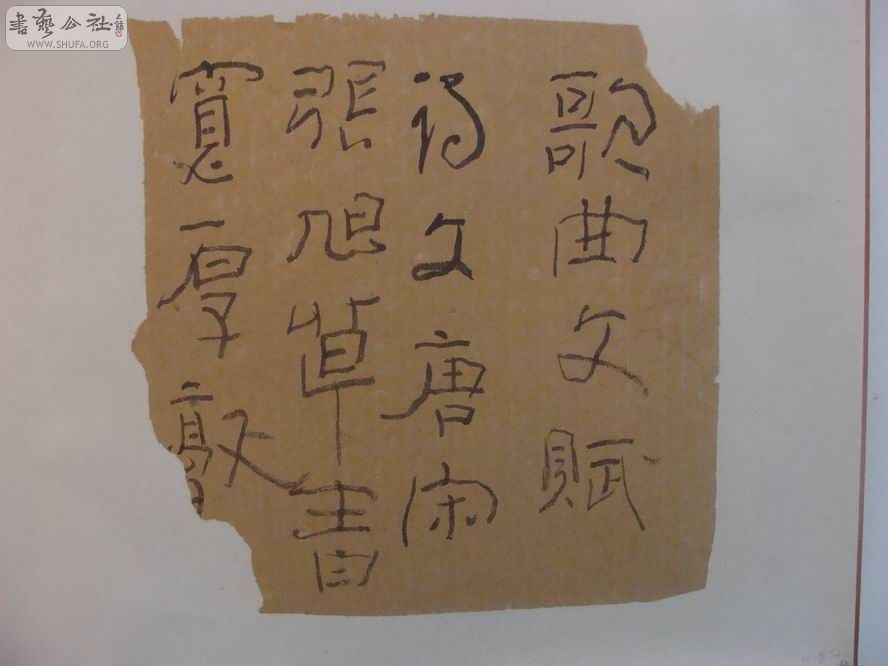 歌曲文赋
诗文唐宋
張旭草書
寬厚敦
書藝公社
WWW.SHUFA.ORG